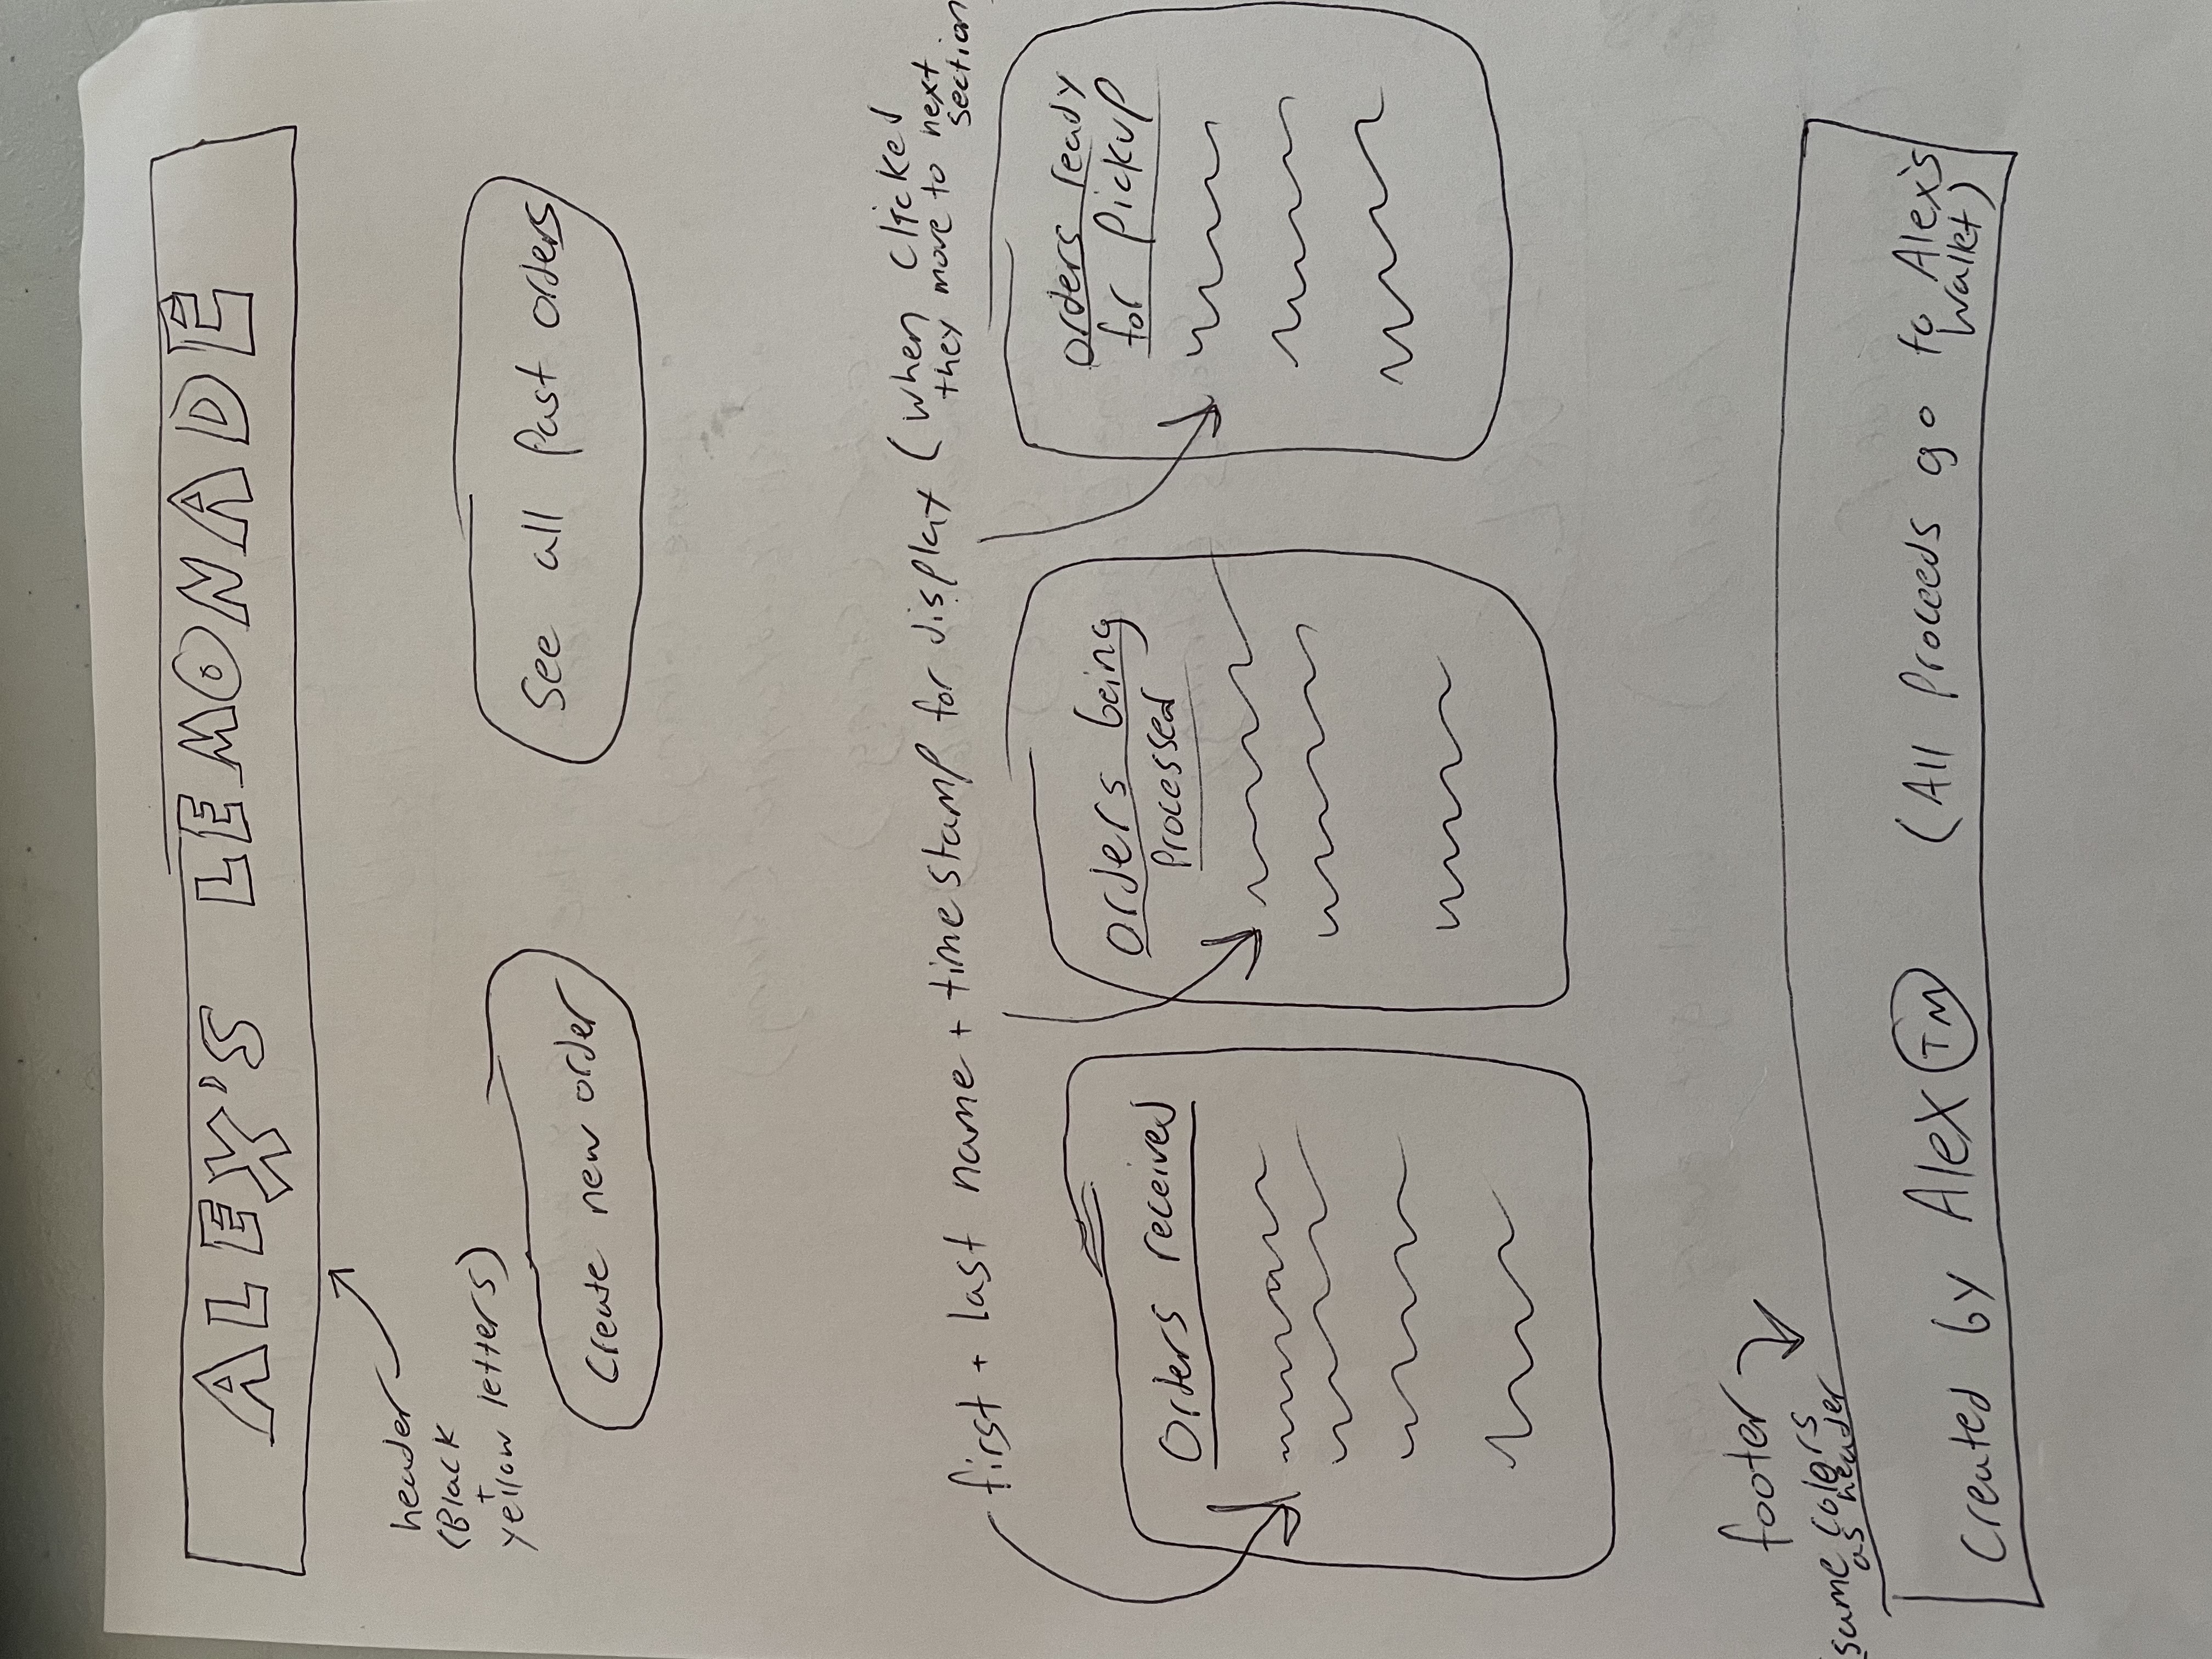 ALEX'S LEMONADE
header
(Black
+
yellow letters)
Create new order
See all past orders
first + last name + timestamp for display (when clicked
they move to next
section
Orders received
Orders being
processed
orders ready
for pickup
footer
same colors
as header
Created by Alex TM (All proceeds go to Alex's
wallet)